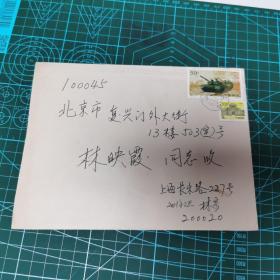 100045
北京市复兴门外大街
13楼503(室)号
林映霞 同志收
上海长乐路227号
林寄
200020